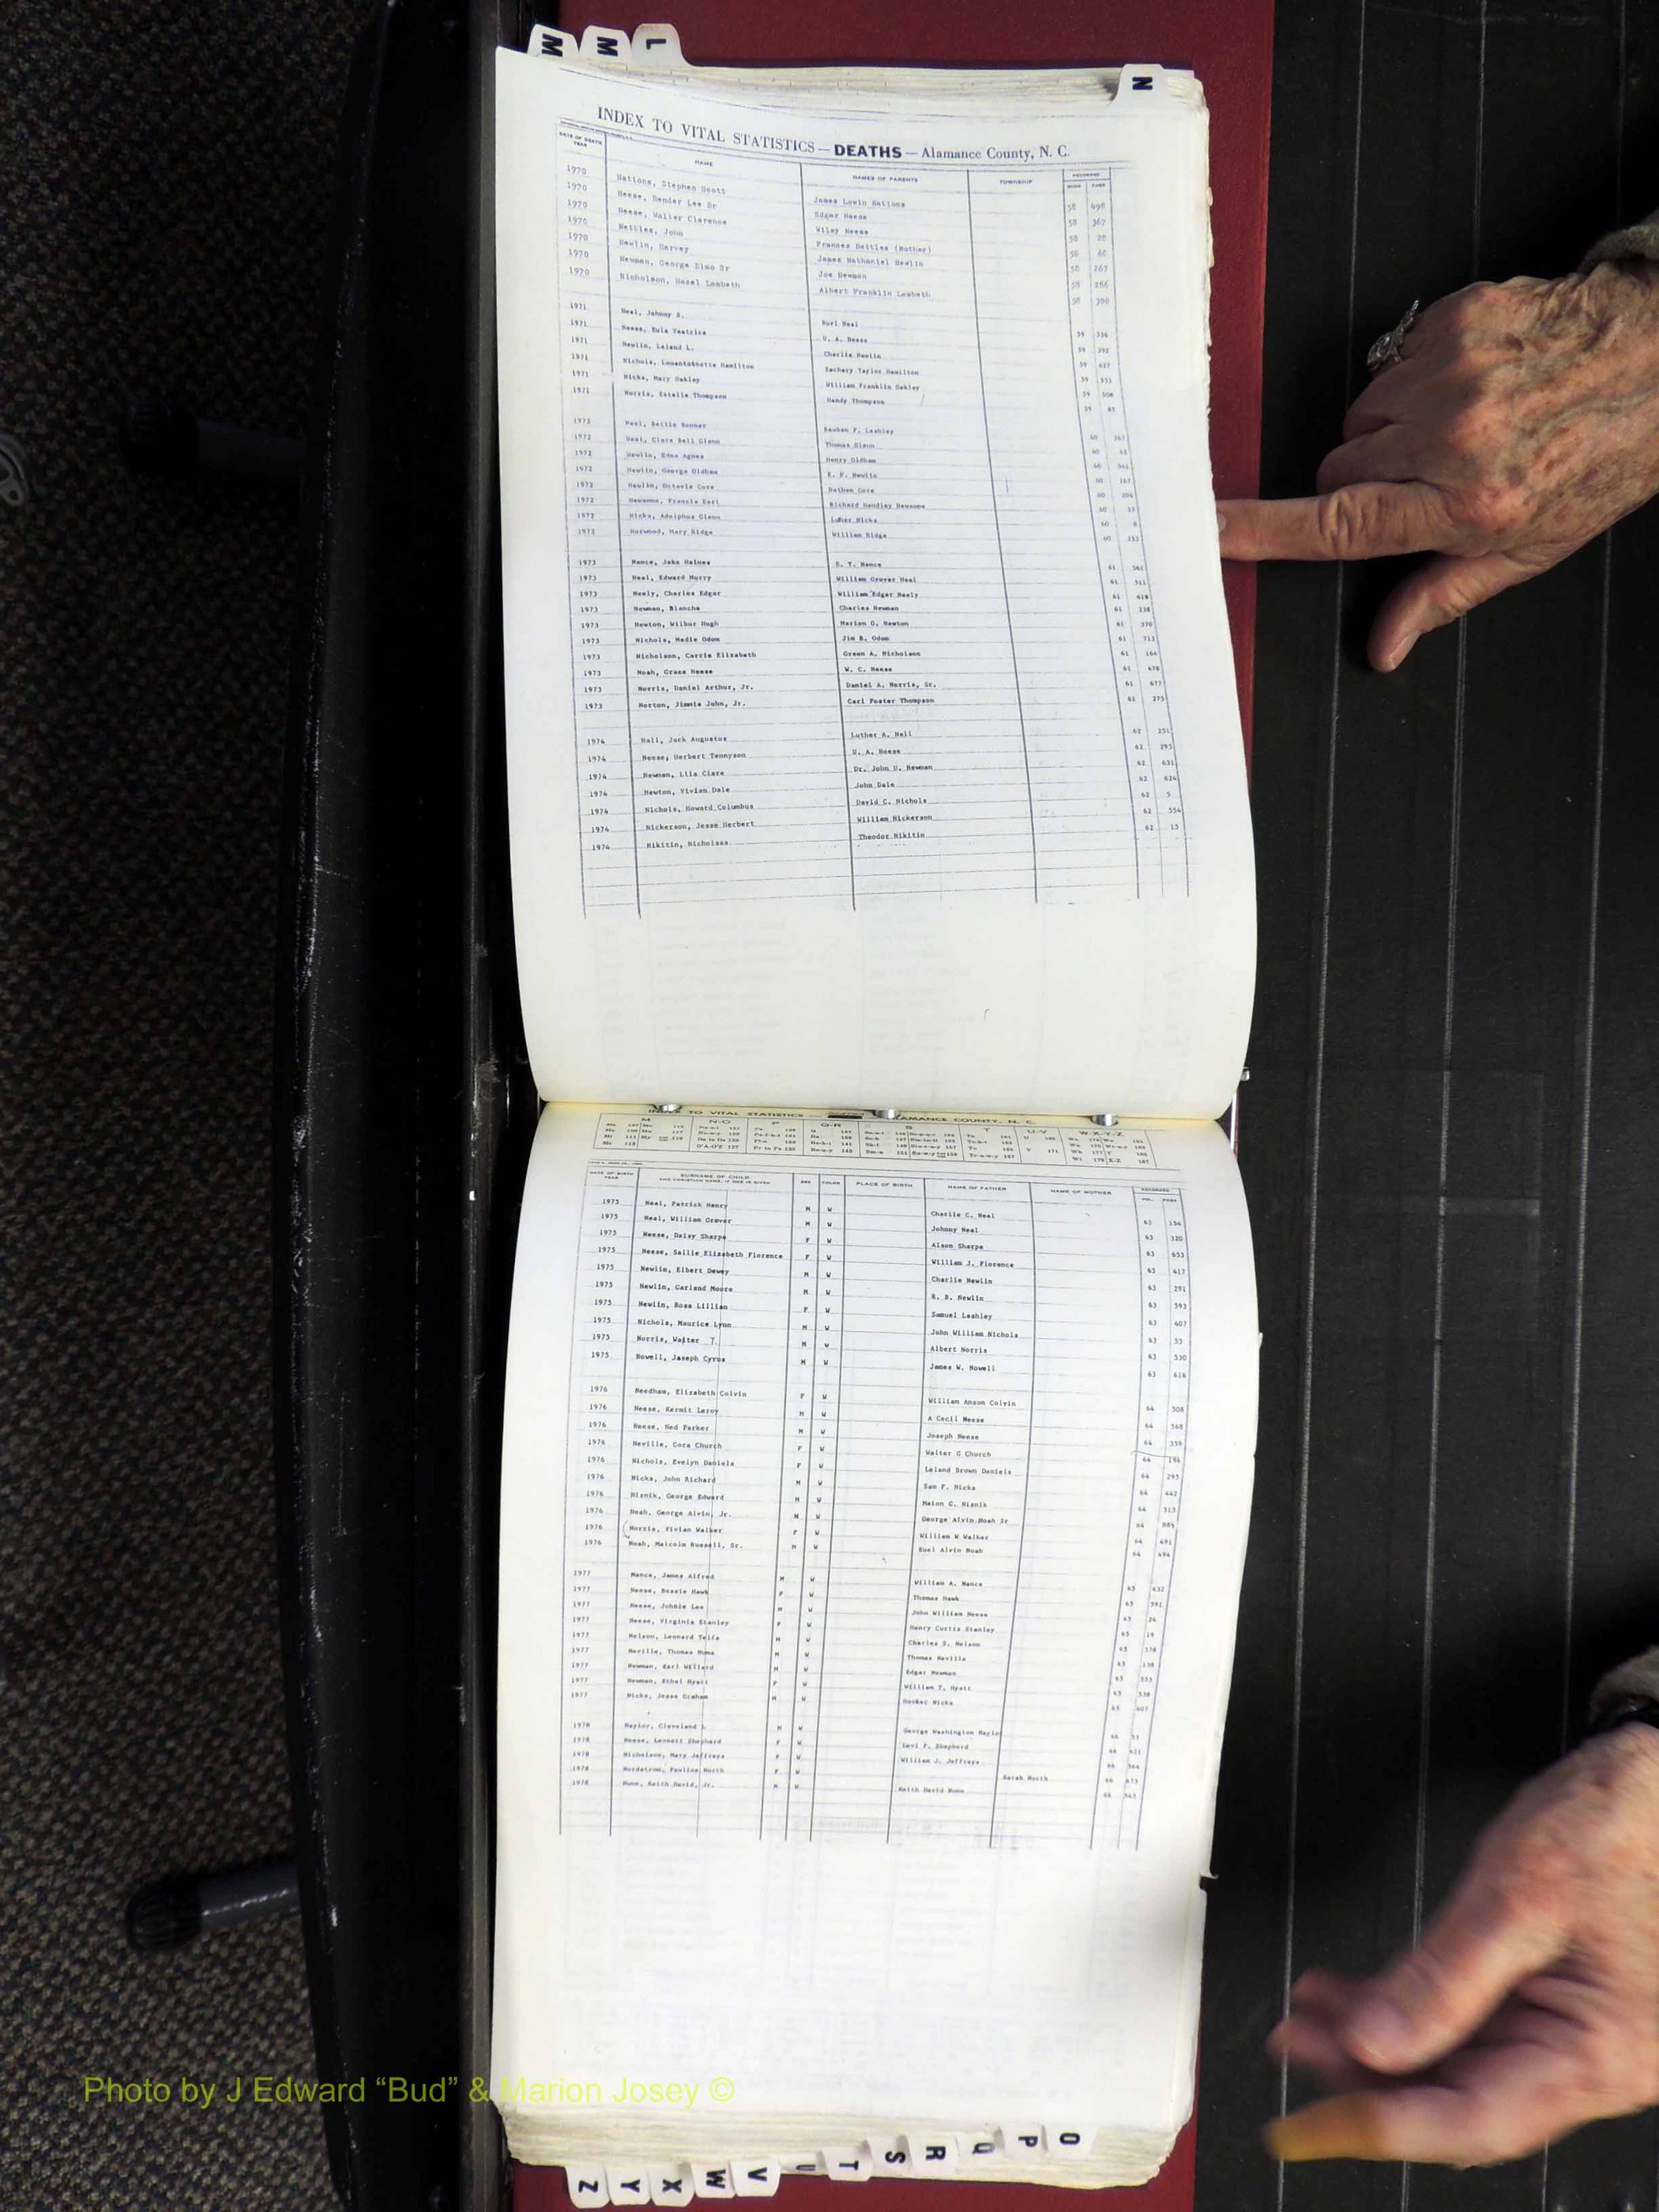 M M L
N
INDEX TO VITAL STATISTICS — DEATHS — Alamance County, N. C.
DATE OF DEATH YEAR NAME NAMES OF PARENTS TOWNSHIP RECORDED BOOK PAGE
1970 Nations, Stephen Scott James Lowin Nations 58 498
1970 Neese, Bender Lee Sr Edgar Neese 58 367
1970 Neese, Walter Clarence Wiley Neese 58 28
1970 Nettles, John Frances Nettles (Mother) 58 60
1970 Newlin, Harvey James Nathaniel Newlin 58 267
1970 Newman, George Elmo Sr Joe Newman 58 286
1970 Nicholson, Hazel Lambeth Albert Franklin Lambeth 58 300
1971 Neal, Johnny S. Burl Neal 59 336
1971 Neese, Eula Veatrice U. A. Neese 59 392
1971 Newlin, Leland L. Charlie Newlin 59 627
1971 Nichols, Hamilton Zachary Taylor Hamilton 59 353
1971 Nicks, Mary Oakley William Franklin Oakley 59 508
1971 Norris, Estelle Thompson Handy Thompson 59 85
1972 Neal, Bettie Bonner Reuben F. Lashley 60 163
1972 Neal, Clara Bell Glenn Thomas Glenn 60 61
1972 Newlin, Edna Agnes Henry Oldham 60 541
1972 Newlin, George Oldham E. P. Newlin 60 167
1972 Newlin, Octavia Core Nathan Core 60 206
1972 Newsome, Francis Earl Richard Handley Newsome 60 23
1972 Nicks, Adolphus Glenn Luther Nicks 60 8
1972 Norwood, Mary Ridge William Ridge 60 255
1973 Nance, Jake Haines S. T. Nance 61 561
1973 Neal, Edward Murry William Grover Neal 61 511
1973 Neely, Charles Edgar William Edgar Neely 61 619
1973 Newman, Blanche Charles Newman 61 238
1973 Newton, Wilbur Hugh Marion G. Newton 61 370
1973 Nichols, Medie Odom Jim B. Odom 61 713
1973 Nicholson, Carrie Elizabeth Green A. Nicholson 61 164
1973 Noah, Grace Neese W. C. Neese 61 678
1973 Norris, Daniel Arthur, Jr. Daniel A. Norris, Sr. 61 677
1973 Norton, Jimmie John, Jr. Carl Foster Thompson 61 275
1974 Nall, Jack Augustus Luther A. Nall 62 251
1974 Neese, Herbert Tennyson U. A. Neese 62 295
1974 Newman, Lila Clare Dr. John U. Newman 62 631
1974 Newton, Vivian Dale John Dale 62 624
1974 Nichols, Howard Columbus David C. Nichols 62 5
1974 Nickerson, Jesse Herbert William Nickerson 62 554
1974 Nikitin, Nicholaas Theodor Nikitin 62 15
INDEX TO VITAL STATISTICS ALAMANCE COUNTY, N. C.
M N-O P Q-R S T U-V W-X-Y-Z
DATE OF BIRTH YEAR SURNAME OF CHILD AND CHRISTIAN NAME, IF ONE IS GIVEN SEX COLOR PLACE OF BIRTH NAME OF FATHER NAME OF MOTHER RECORDED VOL. PAGE
1975 Neal, Patrick Henry M W Charlie C. Neal 63 154
1975 Neal, William Grover M W Johnny Neal 63 320
1975 Neese, Daisy Sharpe F W Alson Sharpe 63 653
1975 Neese, Sallie Elizabeth Florence F W William J. Florence 63 417
1975 Newlin, Elbert Dewey M W Charlie Newlin 63 291
1975 Newlin, Garland Moore M W R. B. Newlin 63 593
1975 Newlin, Rosa Lillian F W Samuel Lashley 63 407
1975 Nichols, Maurice Lynn M W John William Nichols 63 33
1975 Norris, Walter T. M W Albert Norris 63 530
1975 Nowell, Jaseph Cyrus M W James W. Nowell 63 616
1976 Needham, Elizabeth Colvin F W William Anson Colvin 64 508
1976 Neese, Kermit Leroy M W A Cecil Neese 64 568
1976 Neese, Ned Parker M W Joseph Neese 64 359
1976 Neville, Cora Church F W Walter G Church 64 196
1976 Nichols, Evelyn Daniels F W Leland Brown Daniels 64 295
1976 Nicks, John Richard M W Sam F. Nicks 64 442
1976 Niznik, George Edward M W Maion G. Niznik 64 313
1976 Noah, George Alvin, Jr. M W George Alvin Noah Sr 64
1976 Norris, Vivian Walker F W William W Walker 64 491
1976 Noah, Malcolm Russell, Sr. M W Euel Alvin Noah 64 494
1977 Nance, James Alfred M W William A. Nance 65 432
1977 Neese, Bessie Hawk F W Thomas Hawk 65 591
1977 Neese, Johnie Lee M W John William Neese 65 24
1977 Neese, Virginia Stanley F W Henry Curtis Stanley 65 19
1977 Nelson, Leonard Teifa M W Charles S. Nelson 65 178
1977 Neville, Thomas Numa M W Thomas Neville 65 138
1977 Newman, Earl Willard M W Edgar Newman 65 533
1977 Newman, Ethel Hyatt F W William T. Hyatt 65 338
1977 Nicks, Jesse Graham M W Hooker Nicks 65 407
1978 Naylor, Cleveland L M W George Washington Naylor 66 53
1978 Neese, Leonett Shepherd F W Levi P. Shepherd 66 621
1978 Nicholson, Mary Jeffreys F W William J. Jeffreys 66 564
1978 Nordstrom, Pauline North F W Sarah North 66 473
1978 Nunn, Keith David, Jr. M W Keith David Nunn 66 543
Photo by J Edward “Bud” & Marion Josey ©
Z Y X W V U T S R Q P O